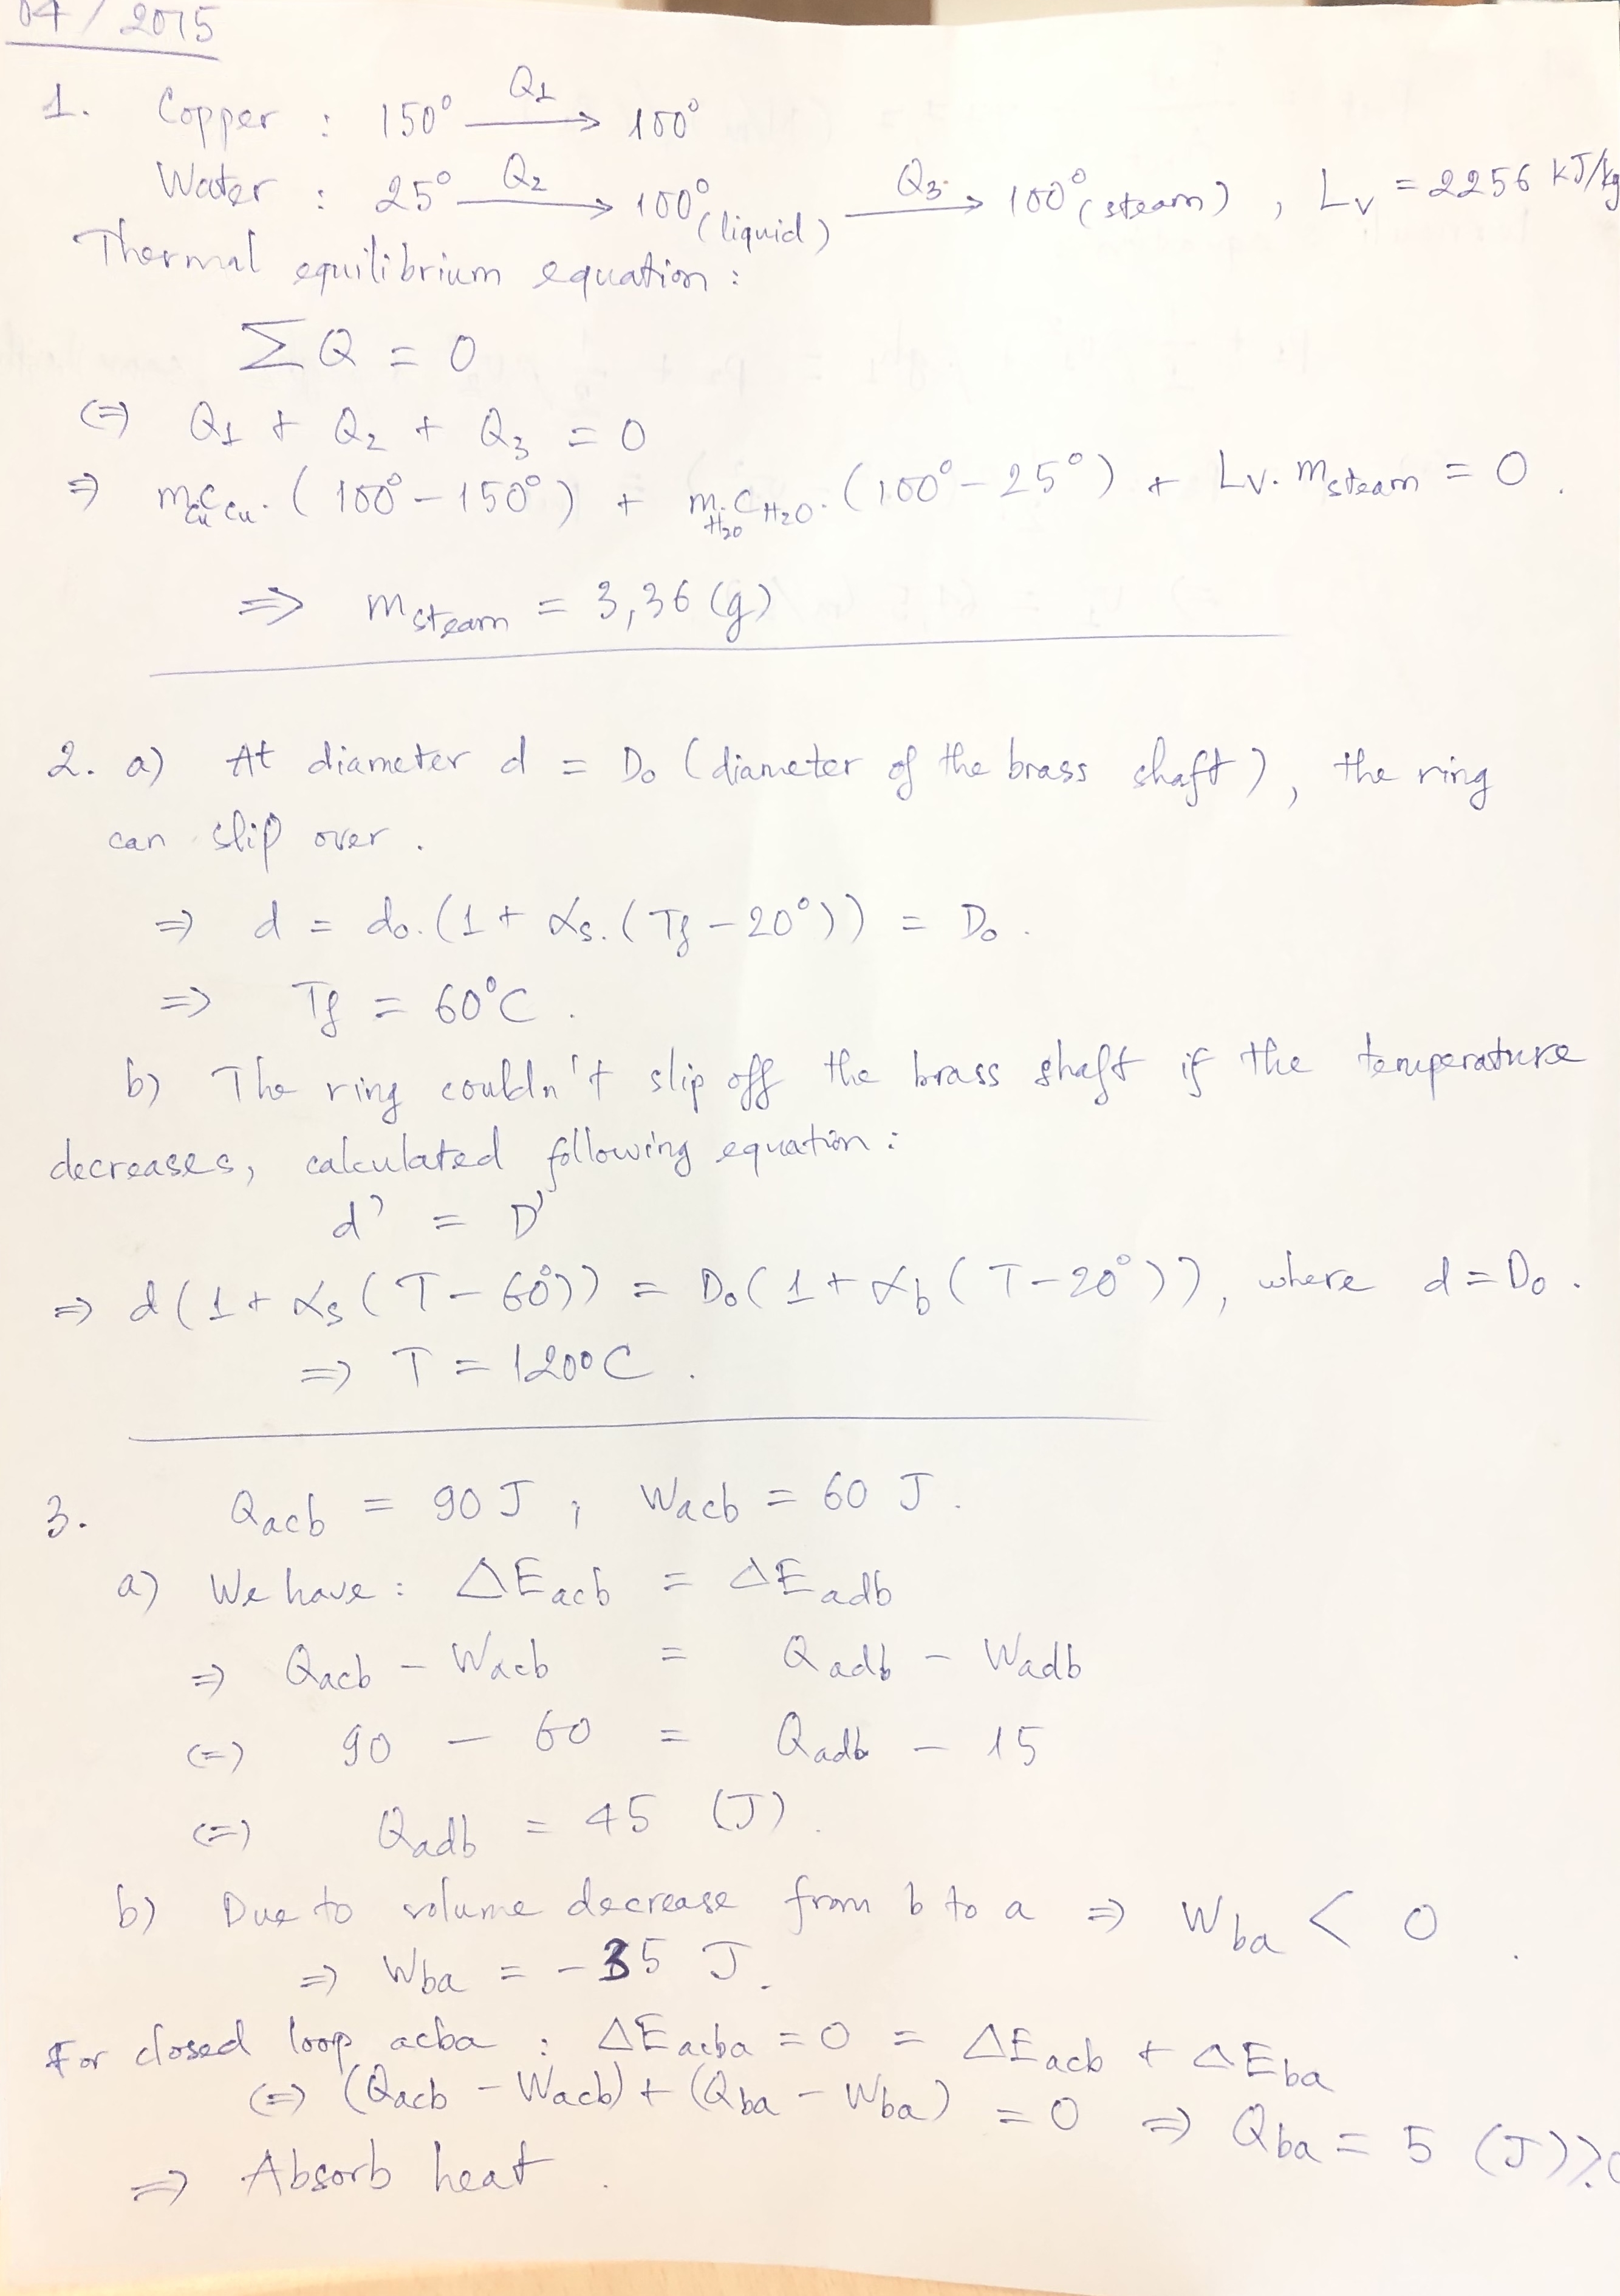 04 / 2015
1. Copper : 150° Q1→ 100°
Water : 25° Q2→ 100° (liquid) Q3→ 100° (steam) , Lv = 2256 kJ/kg
Thermal equilibrium equation :
ΣQ = 0
(=) Q1 + Q2 + Q3 = 0
=> mCu cCu . ( 100° - 150° ) + mH2O . cH2O . ( 100° - 25° ) + Lv . msteam = 0 .
=> msteam = 3,36 (g)
2. a) At diameter d = D0 ( diameter of the brass shaft ) , the ring
can slip over .
=> d = d0 . ( 1 + αs . ( Tf - 20° ) ) = D0 .
=> Tf = 60°C .
b) The ring couldn't slip off the brass shaft if the temperature
decreases, calculated following equation :
d' = D'
=> d ( 1 + αs ( T - 60° ) ) = D0 ( 1 + αb ( T - 20° ) ) , where d = D0 .
=> T = 120°C .
3. Qacb = 90 J ; Wacb = 60 J .
a) We have : ΔEacb = ΔEadb
=> Qacb - Wacb = Qadb - Wadb
(=) 90 - 60 = Qadb - 15
(=) Qadb = 45 (J) .
b) Due to volume decrease from b to a => Wba < 0 .
=> Wba = -35 J .
For closed loop acba : ΔEacba = 0 = ΔEacb + ΔEba
(=) (Qacb - Wacb) + (Qba - Wba) = 0 => Qba = 5 (J) >
=> Absorb heat .